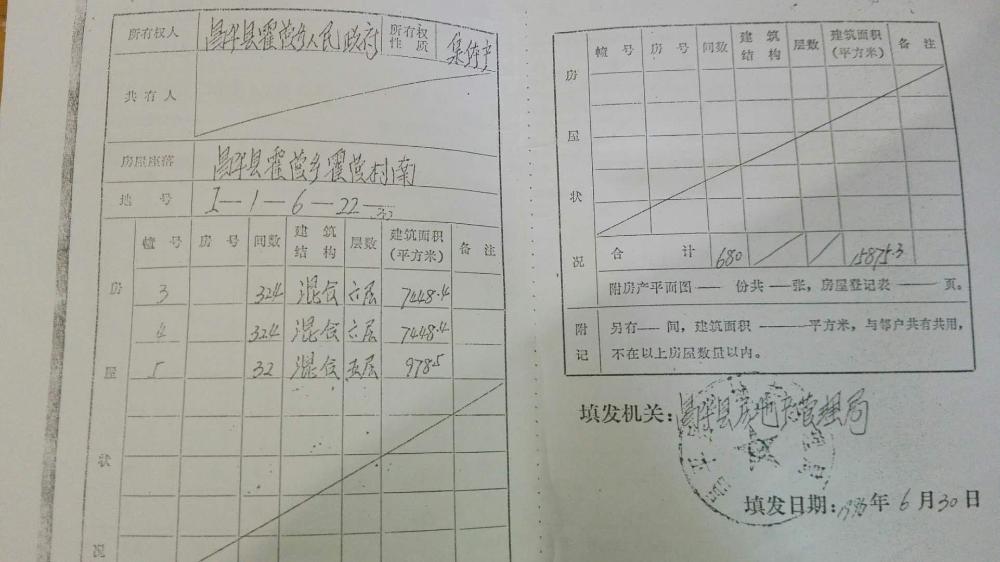 所有权人 昌平县霍营乡人民政府 所有权性质 集体产
共有人
房屋座落 昌平县霍营乡霍营村南
地号 I—1—6—22—
房屋状况
幢号 房号 间数 建筑结构 层数 建筑面积(平方米) 备注
3 324 混合 六层 7448.4
4 324 混合 六层 7448.4
5 32 混合 五层 978.5
房屋状况
幢号 房号 间数 建筑结构 层数 建筑面积(平方米) 备注
合计 680 15875.3
附房产平面图 — 份共 — 张,房屋登记表 —— 页。
附记
另有 — 间,建筑面积 ——— 平方米,与邻户共有共用,
不在以上房屋数量以内。
填发机关:昌平县房地产管理局
填发日期: 年 6 月 30 日